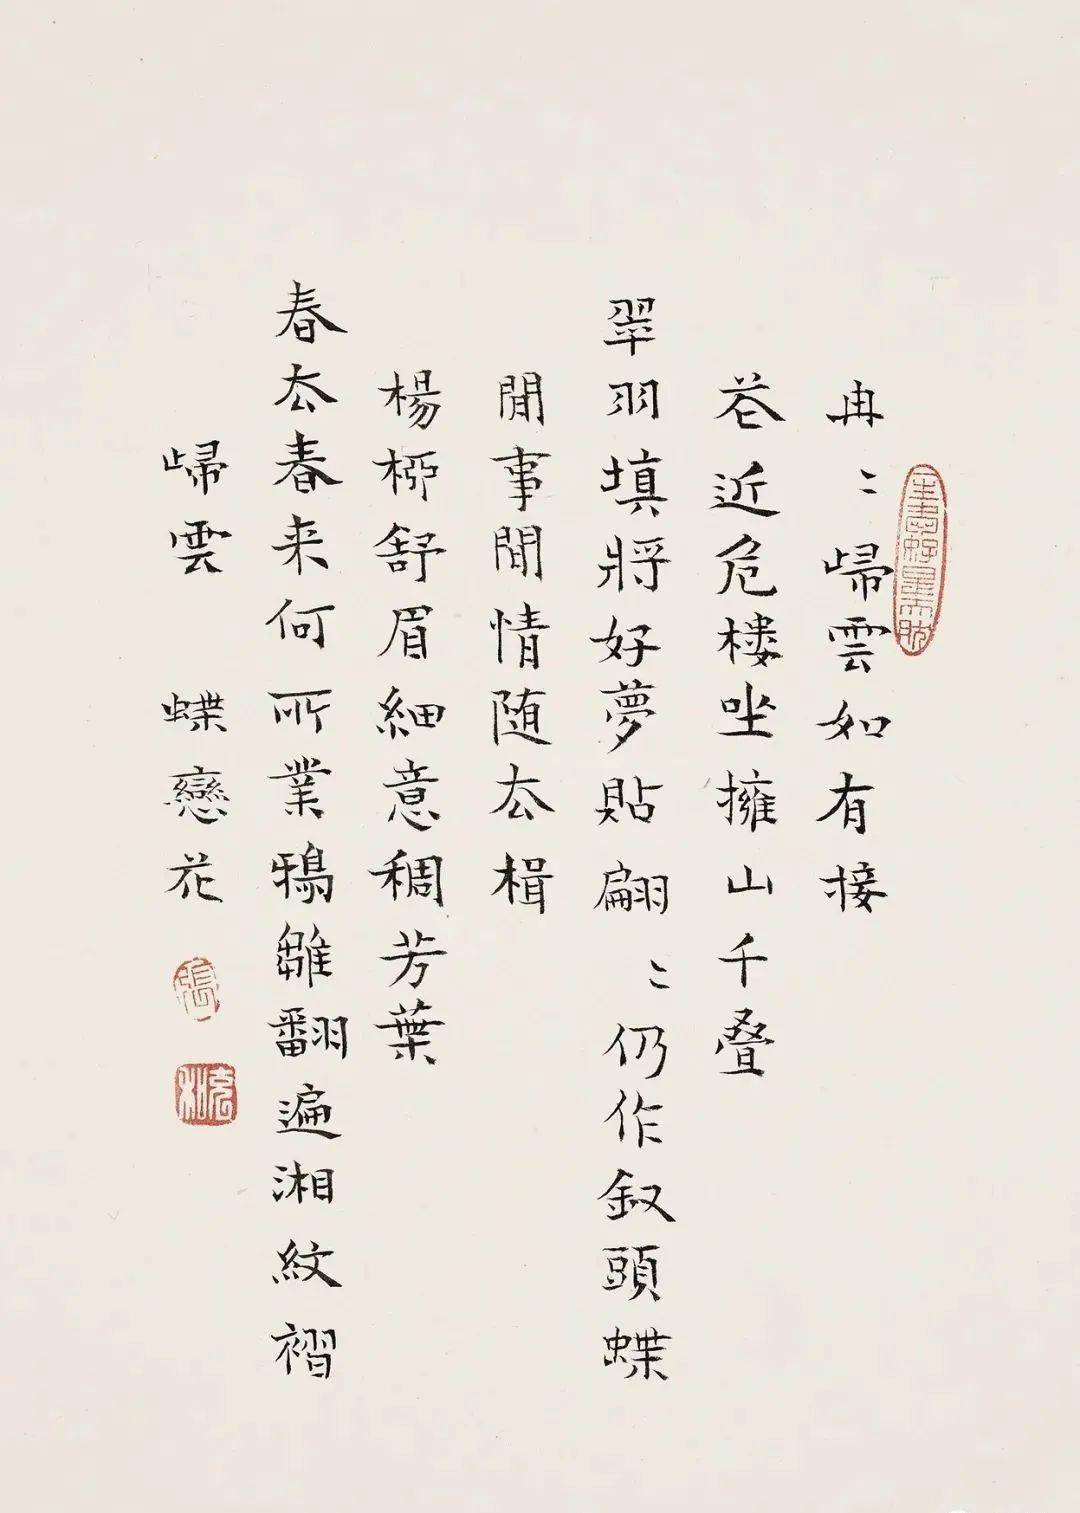 冉〻歸雲如有接
花近危樓坐擁山千叠
翠羽填將好夢貼翩〻仍作釵頭蝶
閒事閒情随去楫
楊柳舒眉細意稠芳葉
春去春来何所業鴉雛翻遍湘紋褶
歸雲 蝶戀花
張